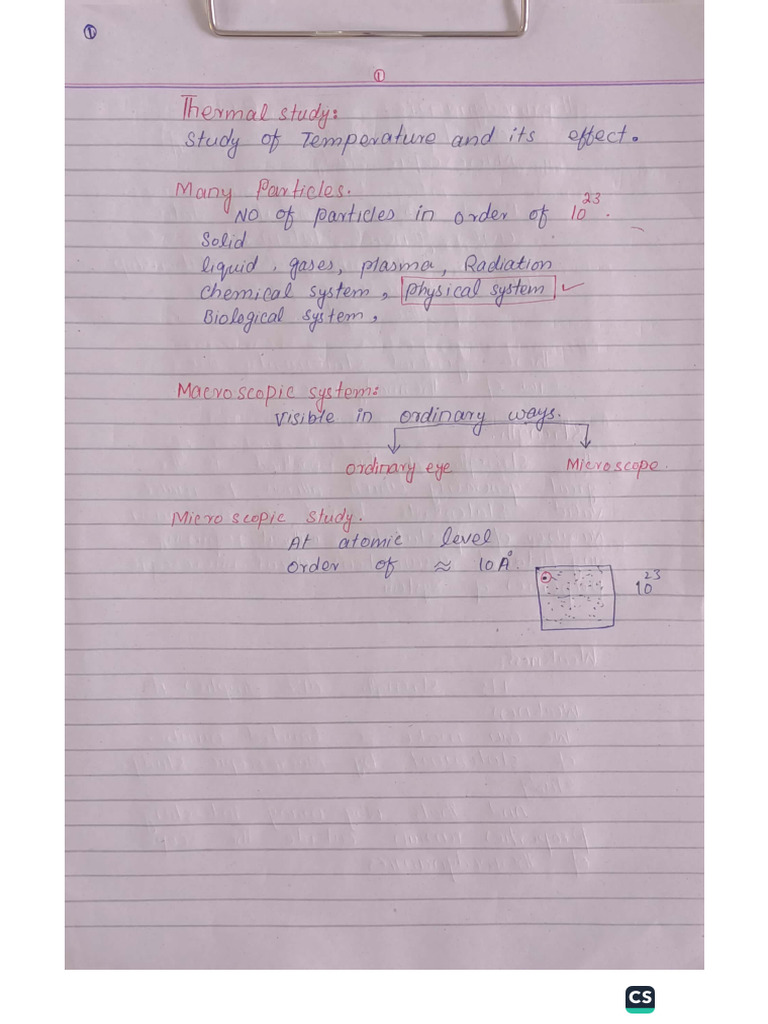 ①
①
Thermal study:
Study of Temperature and its effect.
Many Particles.
NO of particles in order of 10²³.
Solid
liquid, gases, plasma, Radiation
chemical system, Physical system ✓
Biological system,
Macroscopic system:
Visible in ordinary ways.
ordinary eye Microscope.
Microscopic study.
At atomic level
order of ≈ 10A°.
10²³
CS